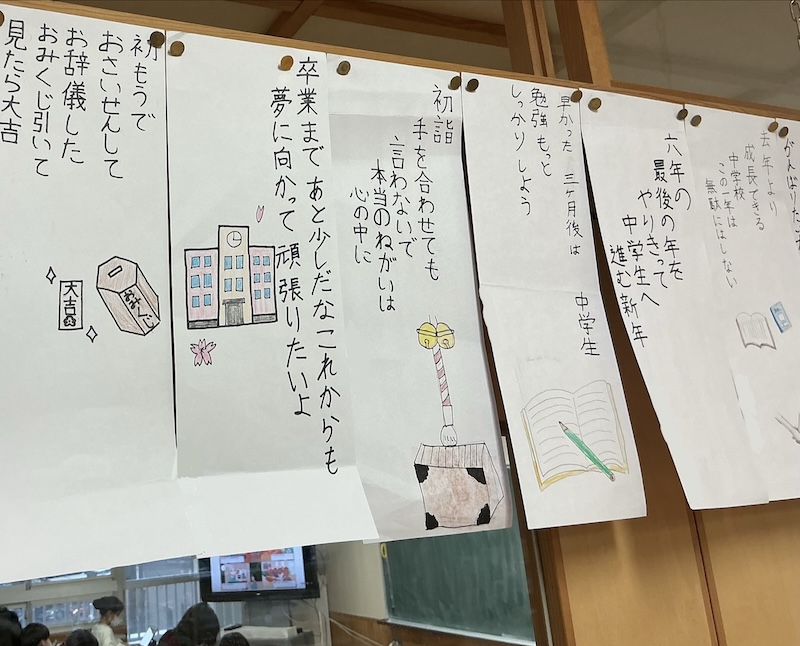 がんばりたい
去年より
成長できる
中学校
この一年は
無駄にはしない
六年の
最後の年を
やりきって
中学生へ
進む新年
早かった 三ヶ月後は 中学生
勉強 もっと
しっかり しよう
初詣
手を合わせても
言わないで
本当のねがいは
心の中に
卒業まで あと少しだな これからも
夢に向かって 頑張りたいよ
初もうで
おさいせんして
お辞儀した
おみくじ引いて
見たら大吉
おみくじ
大吉